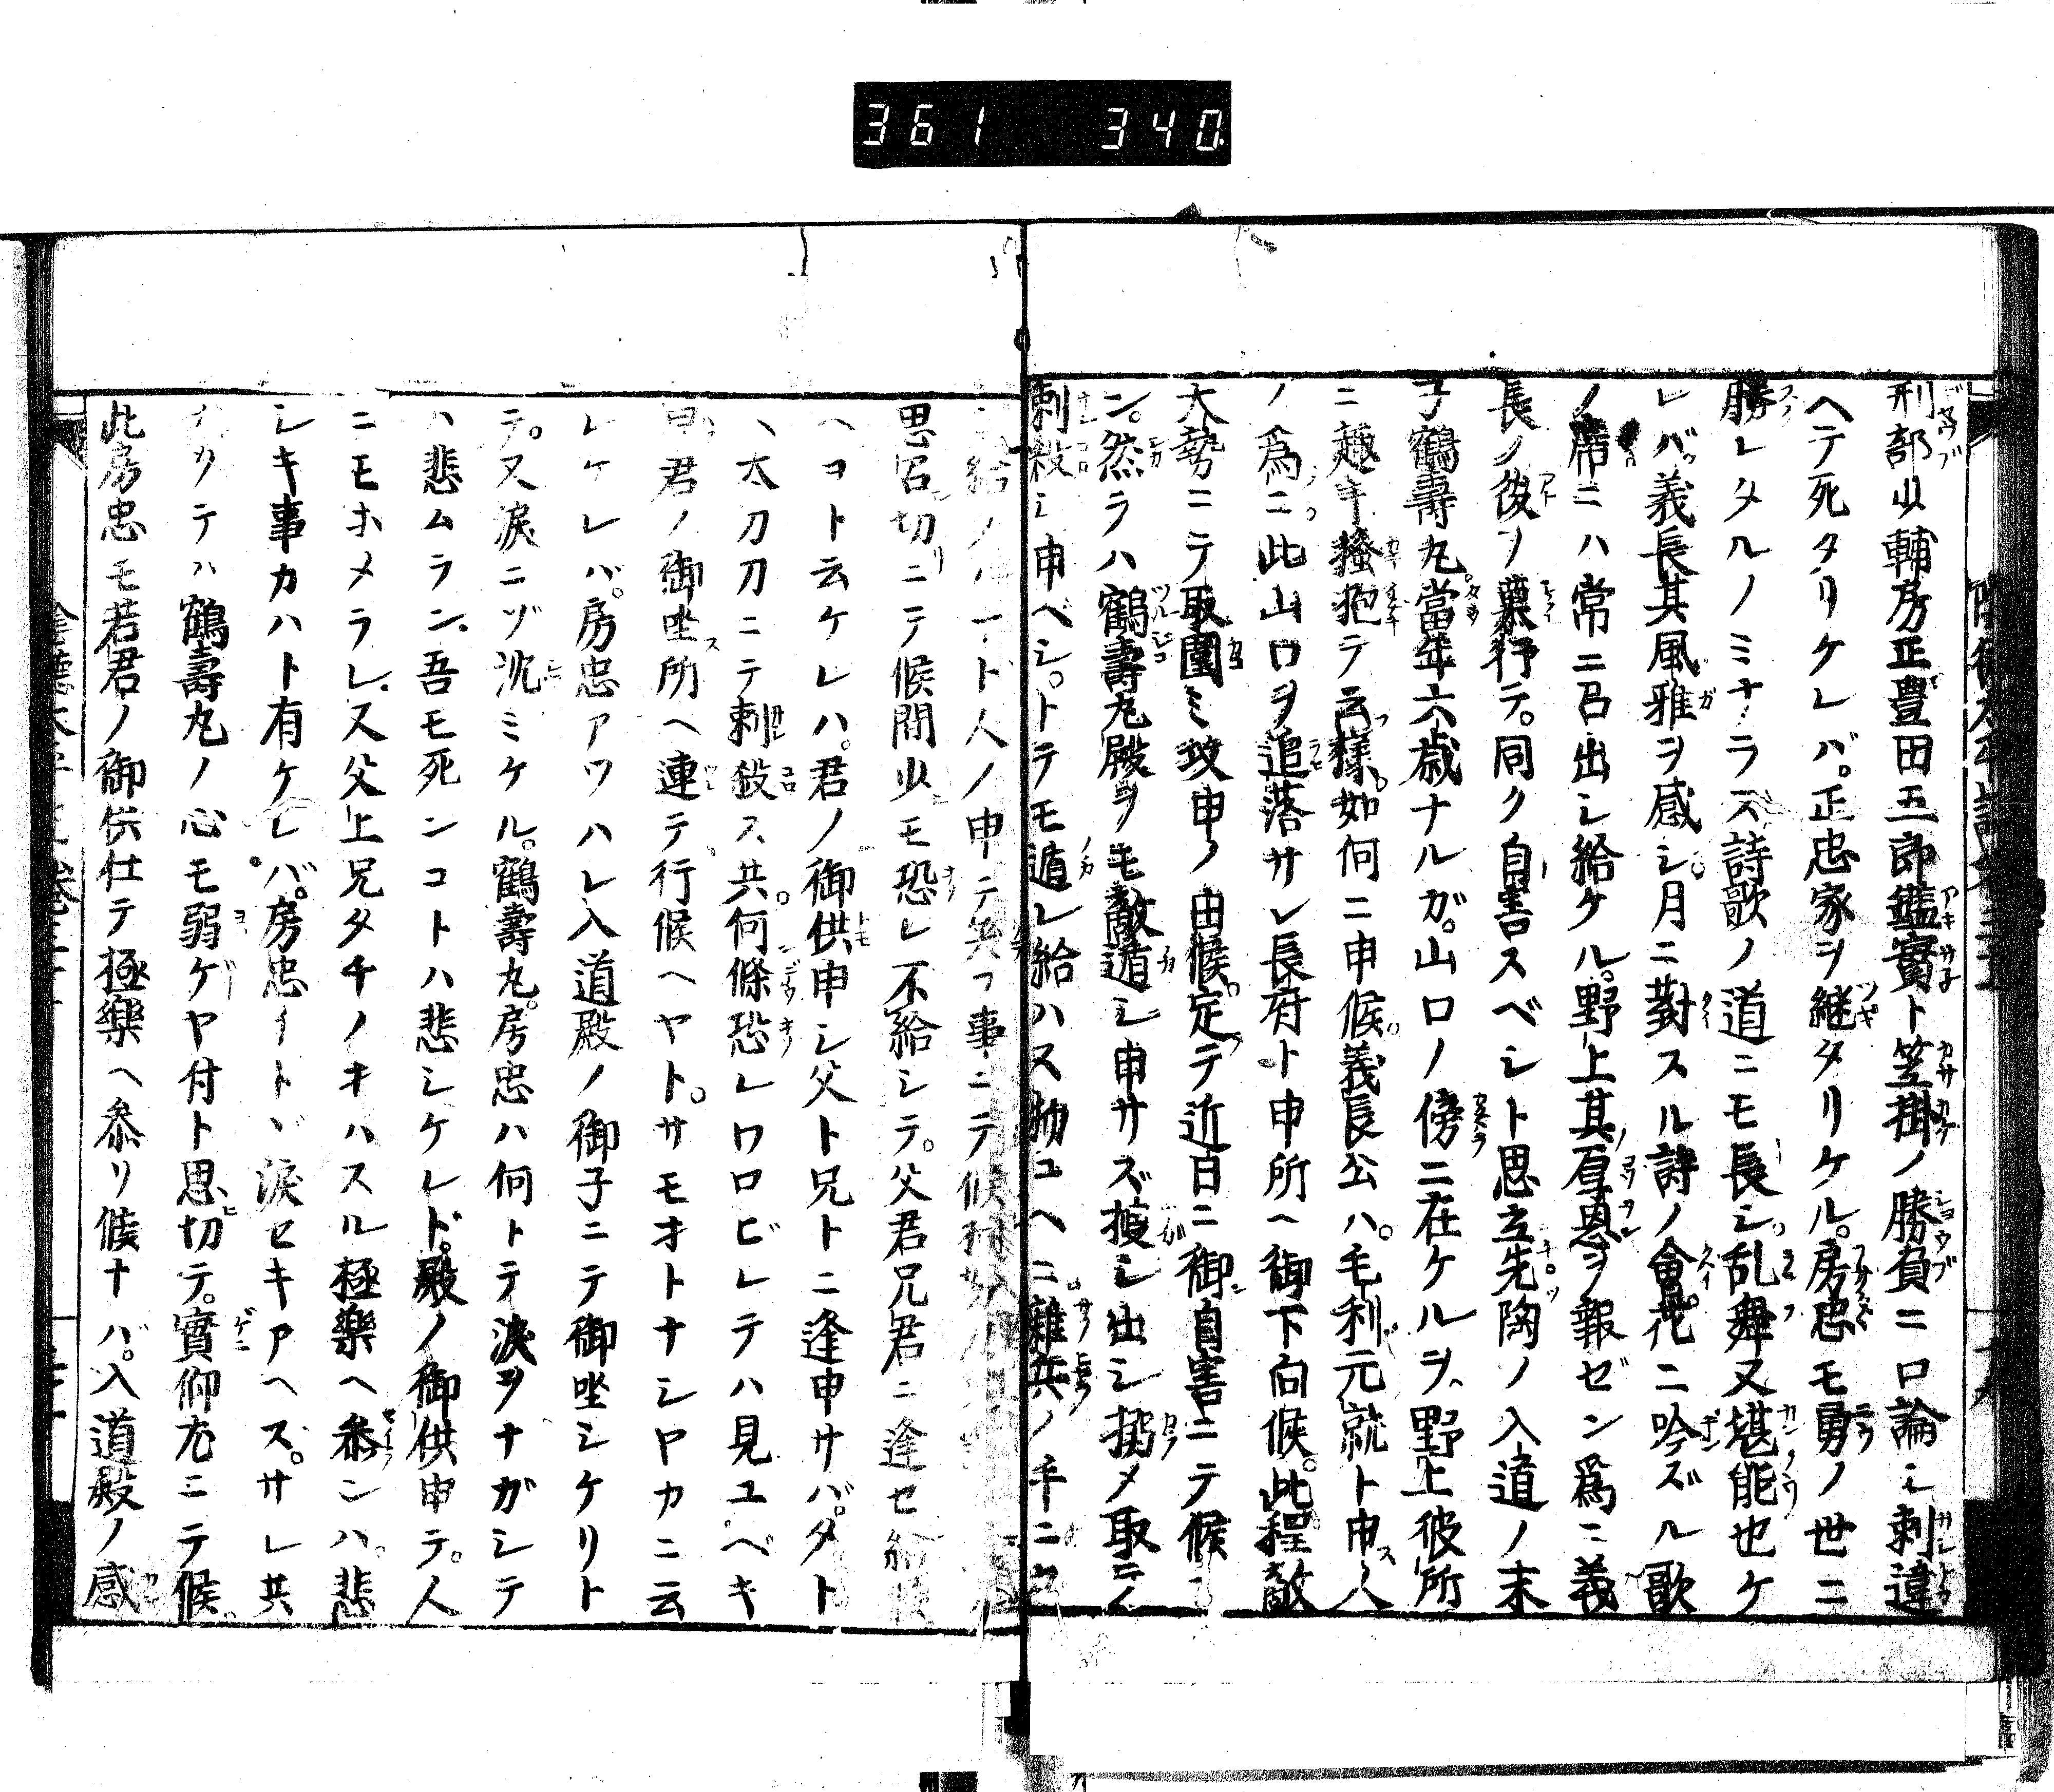 361 340
刑部少輔房正豊田五郎鑑實ト笠掛ノ勝負ニ口論シ刺違
ヘテ死タリケレバ。正忠家ヲ継タリケル。房忠モ勇ノ世ニ
勝レタルノミナラス詩歌ノ道ニモ長シ乱舞又堪能也ケ
レバ義長其風雅ヲ感シ。月ニ對スル詩ノ會。花ニ吟ズル歌
ノ席ニハ常ニ召出シ給ケル。野上其厚恩ヲ報ゼン爲ニ義
長ノ後ヲ慕行テ。同ク自害スベシト思立先陶ノ入道ノ末
子鶴壽丸。當年六歳ナルガ。山口ノ傍ニ在ケルヲ、野上彼所
ニ趣キ掻抱テ云様。如何ニ申候義長公ハ。毛利元就ト申ス人
ノ爲ニ此山口ヲ追落サレ長府ト申所ヘ御下向候。此程敵
大勢ニテ取圍ミ攻申ノ由候。定テ近日ニ御自害ニテ候
ン。然ラハ鶴壽丸殿ヲモ敵遁シ申サズ捜シ出シ搦メ取テ
刺殺シ申ベシ。トテモ遁レ給ハス物ユヘニ。雜兵ノ手ニ
給ノ人ノ申テ笑フ事ニテ候
思召切ニテ候間少モ恐レ不給シテ。父君兄君ニ逢セ給候
ヘヨト云ケレハ。君ノ御供申シ父ト兄トニ逢申サバ。タト
ヽ太刀刀ニテ刺殺ス共。何條恐レワロビレテハ見ユベキ
早君ノ御坐所ヘ連テ行候ヘヤト。サモオトナシヤカニ云
レケレバ。房忠アツハレ入道殿ノ御子ニテ御坐シケリト
テ。又涙ニゾ沈ミケル。鶴壽丸。房忠ハ何トテ涙ヲナガシテ
ハ悲ムラン。吾モ死ンコトハ悲シケレド。殿ノ御供申テ。人
ニモホメラレ。又父上兄タチノオハスル極樂ヘ参ンハ。悲
シキ事カハト有ケレバ。房忠イトヾ涙セキアヘズ。サレ共
カクテハ鶴壽丸ノ心モ弱ゲヤ付ト思切テ。實仰尤ニテ候。
此房忠モ若君ノ御供仕テ極樂ヘ参リ候ナバ。入道殿ノ感